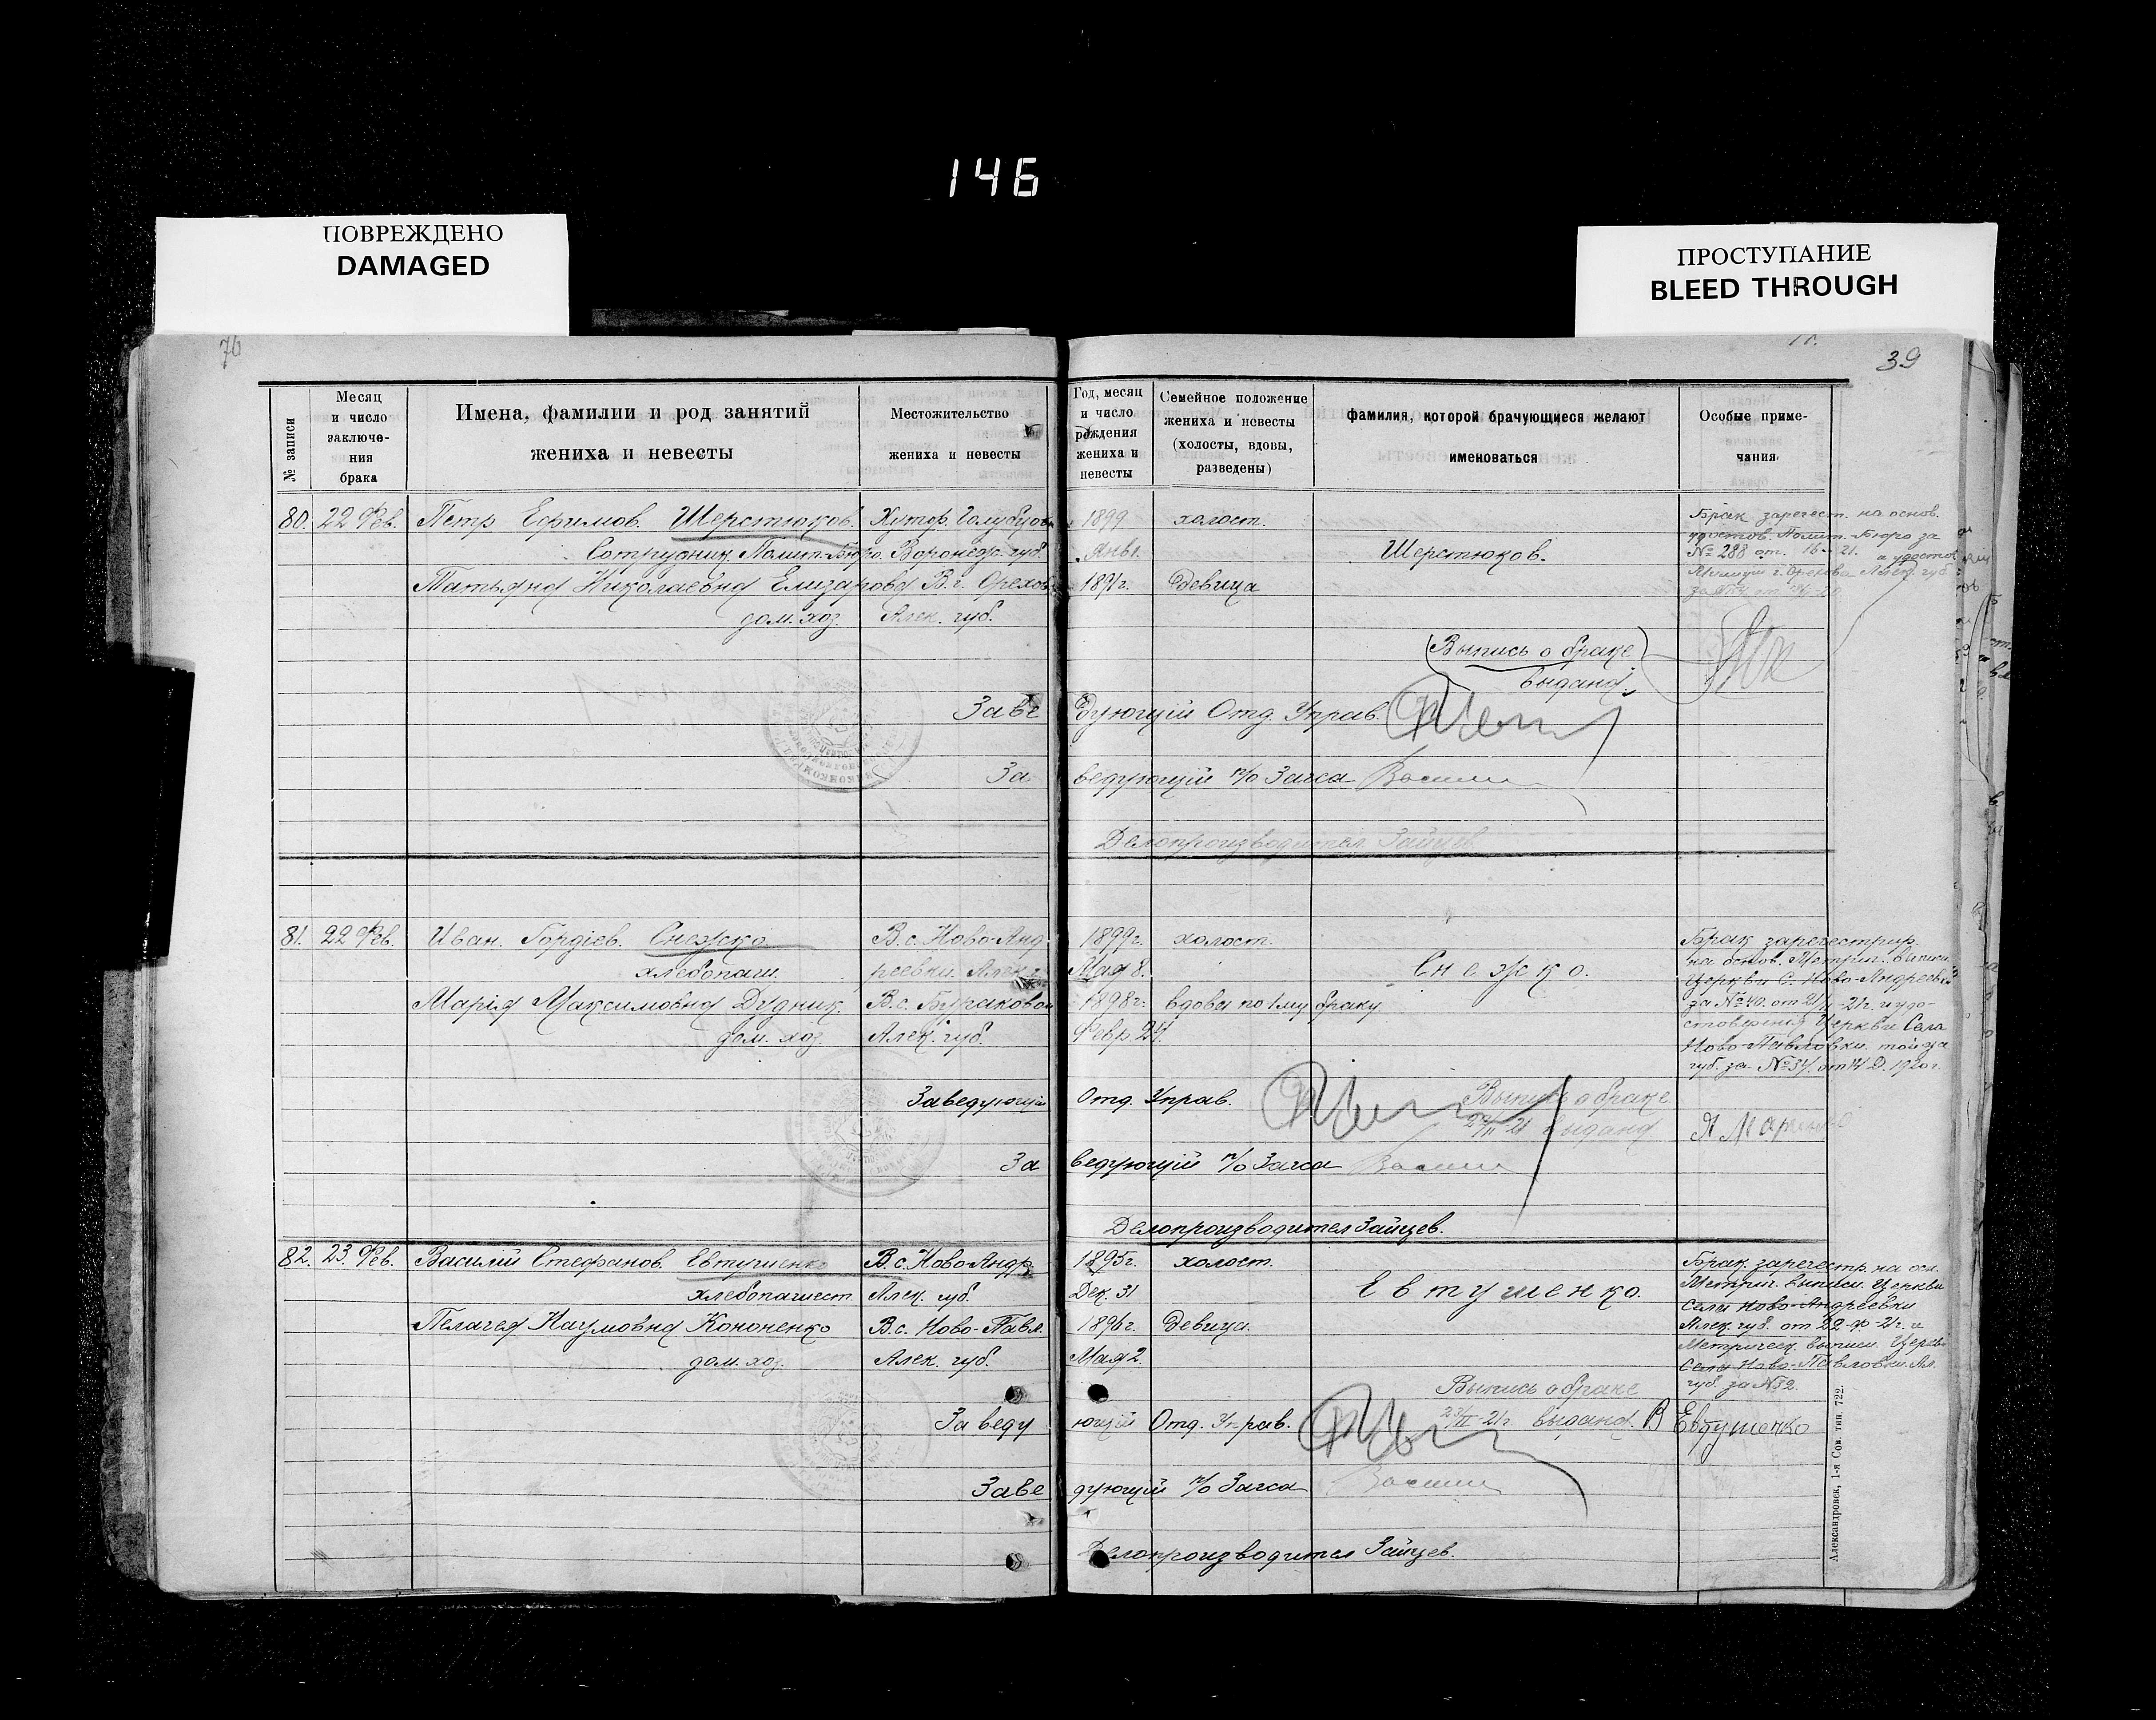 146
ПОВРЕЖДЕНО
DAMAGED
ПРОСТУПАНИЕ
BLEED THROUGH
76
39
№ записи
Месяц и число заключе-ния брака
Имена, фамилии и род занятий
жениха и невесты
Местожительство
жениха и невесты
Год, месяц и число рождения жениха и невесты
Семейное положение жениха и невесты (холосты, вдовы, разведены)
Фамилия, которой брачующиеся желают
именоваться
Особые приме-
чания
80. 22 Фев. Петр Ефимов. Шерстюков. Хутор. 1899 холост. Брак зарегест. на основ.
Сотрудник Полит-Бюро. Воронеж. губ. Янв 1. Шерстюков. Полит-Бюро за
№ 288 от. 16 21. а удостов
Татьяна Николаевна Елизарова В. г. Орехов 189 г. девица г. Орехова Алек. губ.
дом. хоз. Алек. губ.
Выпись о браке
выдана.
Заведующий Отд. Управ.
Заведующій п/о Загса
Делопроизводител Зайцев
81. 22 Фев. Иван. Гордіев. Снежко В. с. Ново-Анд- 1899 г. холост. Брак зарегестрир.
хлебопаш. реевки. Алек. г. Мая 8. Снежко. на основ. Метрич. выписи
Церкви С. Ново-Андреевки
Марія Максимовна Дудник. В. с. Бураковой 1898 г. вдова по 1му браку за № 40. от 21/II-21г. и удо-
дом. хоз. Алек. губ. Февр. 24. стоверенія Церкви Села
Ново-Павловки. той за
губ. за № 34. от 14 Д. 1920 г.
Заведующій Отд. Управ. Выпись о браке
22/II 21 выдана
Заведующій п/о Загса
Делопроизводител Зайцев.
82. 23 Фев. Василій Стефанов. Евтушенко В. с. Ново-Андр. 1895 г. холост. Брак. зарегестр. на осн.
хлебопашест. Алек. губ. Дек. 31 Евтушенко. Метрич. выписи Церкви
Села Ново-Андреевки
Пелагея Наумовна Кононенко В. с. Ново-Павл. 1896 г. Девица. Алек. губ. от 22-Ф-21г. и
Метрическ. выписи Церкв
дом. хоз. Алек. губ. Мая 2. Села Ново-Павловки Ал.
губ. за № 32.
Выпись о браке
Заведующій Отд. Управ. 23/II-21г. выдана. В Евтушенко
Заведующій п/о Загса
Делопроизводител Зайцев.
Александровск, 1-я Сов. тип. 722.